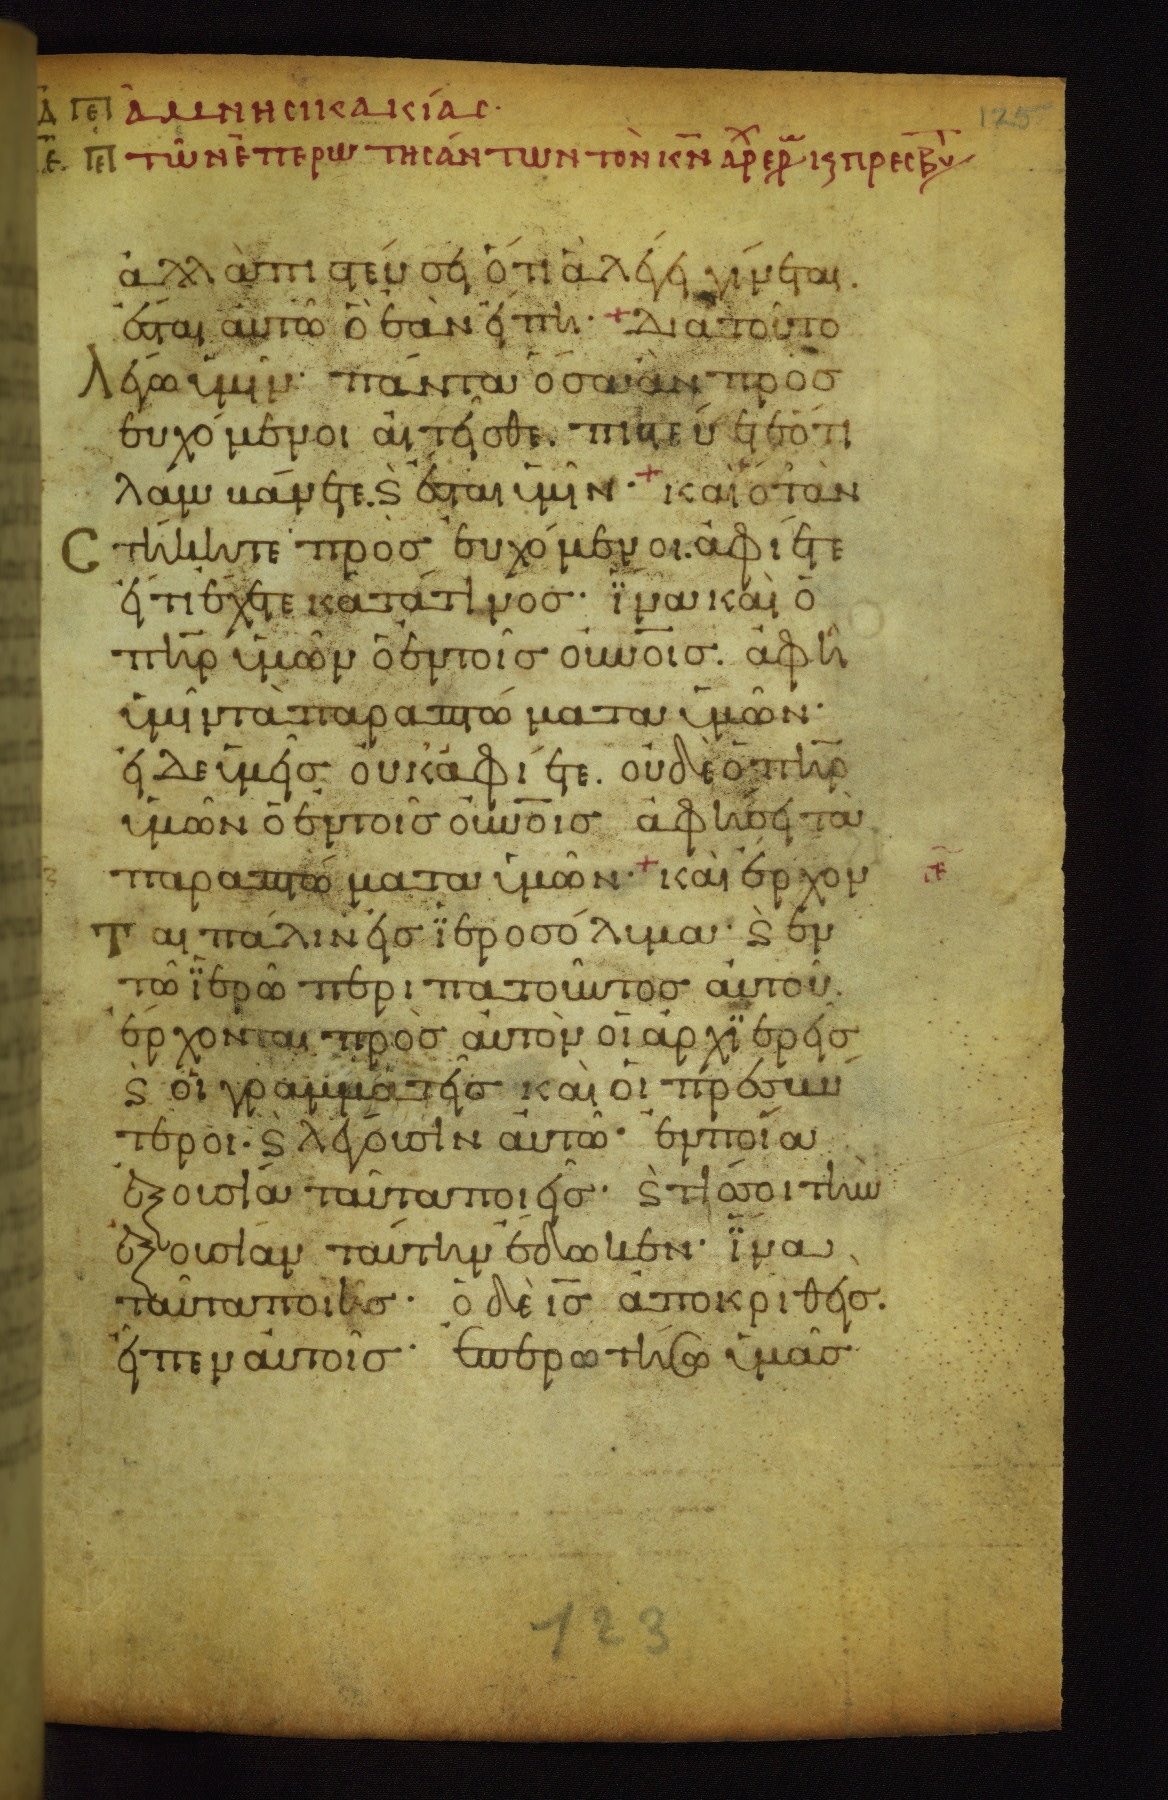 λ̅δ̅ πε ἀμνησικακίας·
λ̅ε̅. πε τῶν ἐπερωτησάντων τὸν κ̅ν̅ ἀρχιερ ϗ πρεσβυ
125
ἀλλὰ πιστεύσει ὅτι ἃ λέγει γίνεται.
ἔσται αὐτῶ ὃ ἐὰν εἴπη· + Διὰ τοῦτο
λέγω ὑμῖν· πάντα ὅσα ἂν προσ
ευχόμενοι αἰτεῖσθε. πιστεύετε ὅτι
λαμβάνετε. ϗ ἔσται ὑμῖν· + καὶ ὅταν
στήκητε προσευχόμενοι. ἀφίετε
εἴ τι ἔχετε κατά τινος· ἵνα καὶ ὁ
π̅η̅ρ̅ ὑμῶν ὁ ἐν τοῖς ο̅υ̅ν̅ο̅ι̅ς. ἀφῆ
ὑμῖν τὰ παραπτώματα ὑμῶν·
εἰ δὲ ὑμεῖς οὐκ ἀφίετε. οὐδὲ ὁ π̅η̅ρ̅
ὑμῶν ὁ ἐν τοῖς ο̅υ̅ν̅ο̅ι̅ς ἀφήσει τὰ
παραπτώματα ὑμῶν· + καὶ ἔρχον
ται πάλιν εἰς ἱεροσόλυμα· ϗ ἐν
τῶ ἱερῶ περιπατοῦντος αὐτοῦ.
ἔρχονται πρὸς αὐτὸν οἱ ἀρχιερεῖς
ϗ οἱ γραμματεῖς καὶ οἱ πρεσβύ
τεροι· ϗ λέγουσιν αὐτῶ· ἐν ποία
ἐξουσία ταῦτα ποιεῖς· ϗ τίς σοι τὴν
ἐξουσίαν ταύτην ἔδωκεν· ἵνα
ταῦτα ποιῆς· ὁ δὲ ι̅ς̅ ἀποκριθείς.
εἶπεν αὐτοῖς· ἐπερωτήσω ὑμᾶς
123